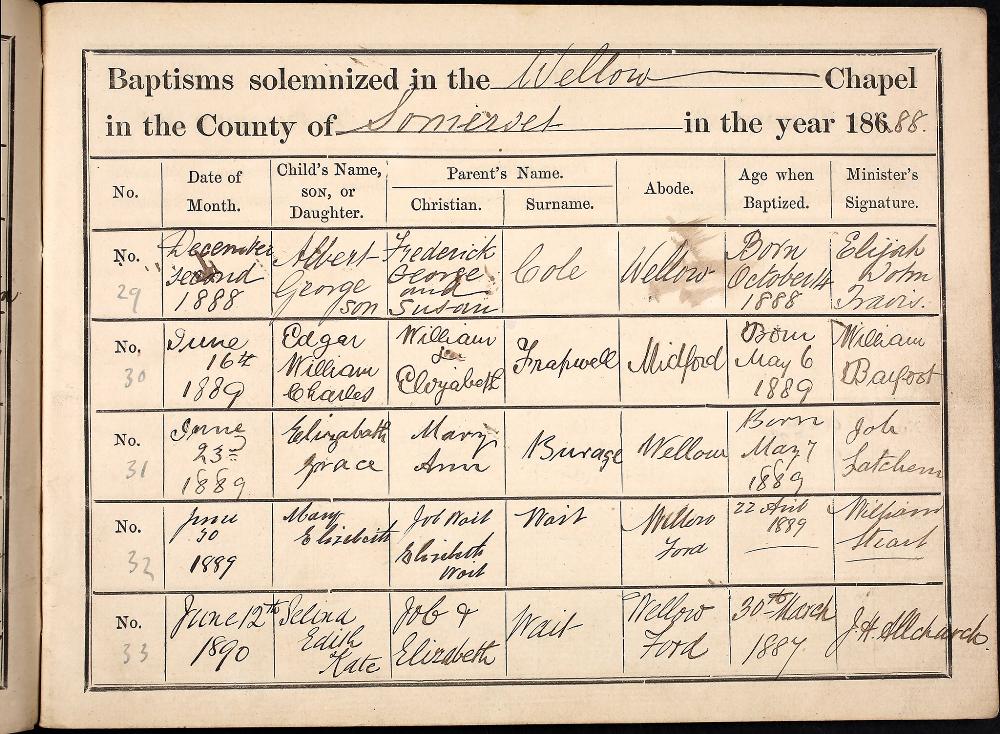 Baptisms solemnized in the Wellow Chapel
in the County of Somerset in the year 186 88.
No.
Date of
Month.
Child's Name,
SON, OR
Daughter.
Parent's Name.
Christian.
Surname.
Abode.
Age when
Baptized.
Minister's
Signature.
No.
29
December
second
1888
Albert
George
son
Frederick
George
and
Susan
Cole
Wellow
Born
October 14
1888
Elijah
John
Travis.
No.
30
June
16th
1889
Edgar
William
Charles
William
&
Elizabeth
Frapwell
Midford
Born
May 6
1889
William
Barfoot
No.
31
June
23rd
1889
Elizabath
Grace
Mary
Ann
Burage
Wellow
Born
May 7
1889
Job
Latchem
No.
32
June
30
1889
Mary
Elizebeith
Job Wait
Elizebeth
Wait
Wait
Wellow
Ford
22
1889
William
No.
33
June 12th
1890
Selina
Edith
Kate
Job &
Elizabeth
Wait
Wellow
Ford
30th March
1887
J. H. Allchurch.